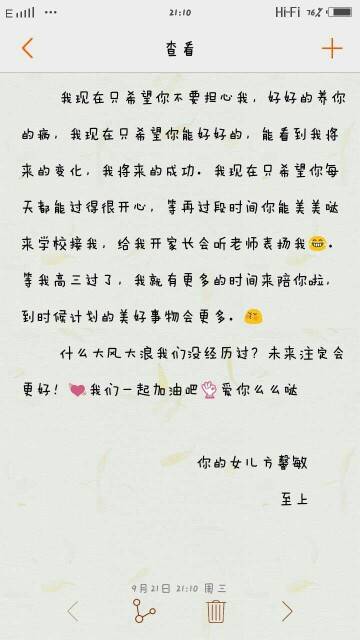 E 21:10 Hi-Fi 76%
查看
我现在只希望你不要担心我，好好的养你
的病，我现在只希望你能好好的，能看到我将
来的变化，我将来的成功．我现在只希望你每
天都能过得很开心，等再过段时间你能美美哒
来学校接我，给我开家长会听老师表扬我😁．
等我高三过了，我就有更多的时间来陪你啦，
到时候计划的美好事物会更多．🤗
什么大风大浪我们没经历过？未来注定会
更好！💓我们一起加油吧👌爱你么么哒
你的女儿方馨敏
至上
9月21日 21:10 周三